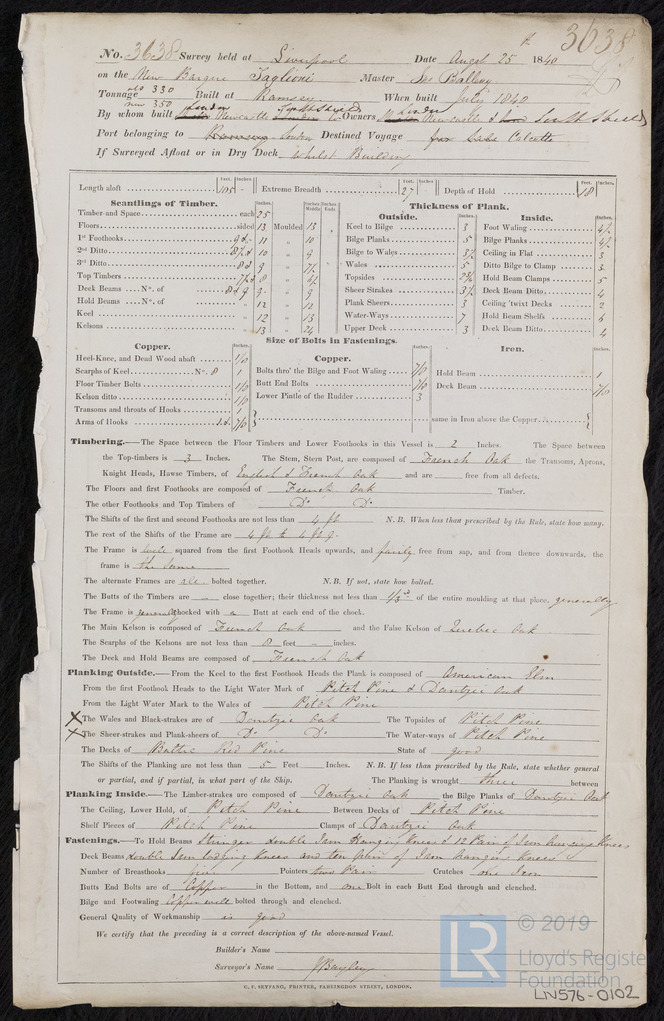 3638
No. 3638 Survey held at Liverpool Date Augst 25th 1840
on the New Barque Taglioni Master Jas Balleny
Tonnage old 330 new 350 Built at Ramsey When built July 1840
By whom built London Newcastle South Shields Owners London Newcastle & South Shields
Port belonging to Ramsey London Destined Voyage for Calcutta
If Surveyed Afloat or in Dry Dock Whilst Building
Length aloft 105 Extreme Breadth 27 Depth of Hold 18
Feet. Inches. Feet. Inches. Feet. Inches.
Scantlings of Timber.
Inches. Inches Middle Inches Ends
Timber and Space each 25
Floors sided 13 Moulded 13
1st Foothooks 11 " 10
2nd Ditto 10 " 9
3rd Ditto 9
Top Timbers 8
Deck Beams No. of 9 " 9
Hold Beams No. of 12 " 12
Keel 12 " 13
Kelsons 13 " 24
Thickness of Plank.
Outside.
Inches.
Keel to Bilge 3
Bilge Planks 5
Bilge to Wales
Wales 5
Topsides
Sheer Strakes
Plank Sheers 3
Water-Ways 7
Upper Deck 3
Inside.
Inches.
Foot Waling
Bilge Planks
Ceiling in Flat 3
Ditto Bilge to Clamp 3
Hold Beam Clamps 5
Deck Beam Ditto 4
Ceiling 'twixt Decks 2
Hold Beam Shelfs
Deck Beam Ditto 4
Size of Bolts in Fastenings.
Copper.
Inches.
Heel-Knee, and Dead Wood abaft
Scarphs of Keel No. 8 1
Floor Timber Bolts
Kelson ditto
Transoms and throats of Hooks 1
Arms of Hooks 7/8
Copper.
Inches.
Bolts thro' the Bilge and Foot Waling 7/8
Butt End Bolts 7/8
Lower Pintle of the Rudder 3
Iron.
Inches.
Hold Beam 1
Deck Beam 7/8
same in Iron above the Copper.
Timbering.—The Space between the Floor Timbers and Lower Foothooks in this Vessel is 2 Inches. The Space between
the Top-timbers is 3 Inches. The Stem, Stern Post, are composed of French Oak the Transoms, Aprons,
Knight Heads, Hawse Timbers, of English & French Oak and are free from all defects.
The Floors and first Foothooks are composed of French Oak Timber.
The other Foothooks and Top Timbers of Do Do
The Shifts of the first and second Foothooks are not less than 4 ft N. B. When less than prescribed by the Rule, state how many.
The rest of the Shifts of the Frame are 4 ft to 4 ft 9.
The Frame is well squared from the first Foothook Heads upwards, and fairly free from sap, and from thence downwards, the
frame is the same
The alternate Frames are all bolted together. N. B. If not, state how bolted.
The Butts of the Timbers are close together; their thickness not less than 1/3d of the entire moulding at that place, generally
The Frame is generally chocked with a Butt at each end of the chock.
The Main Kelson is composed of French Oak and the False Kelson of Quebec Oak
The Scarphs of the Kelsons are not less than 8 feet - inches.
The Deck and Hold Beams are composed of French Oak
Planking Outside.—From the Keel to the first Foothook Heads the Plank is composed of American Elm
From the first Foothook Heads to the Light Water Mark of Pitch Pine & Dantzic Oak
From the Light Water Mark to the Wales of Pitch Pine
X The Wales and Black-strakes are of Dantzic Oak The Topsides of Pitch Pine
X The Sheer-strakes and Plank-sheers of Do Do The Water-ways of Pitch Pine
The Decks of Baltic Red Pine State of good
The Shifts of the Planking are not less than 5 Feet Inches. N. B. If less than prescribed by the Rule, state whether general
or partial, and if partial, in what part of the Ship. The Planking is wrought three between
Planking Inside.—The Limber-strakes are composed of Dantzic Oak the Bilge Planks of Dantzic Oak
The Ceiling, Lower Hold, of Pitch Pine Between Decks of Pitch Pine
Shelf Pieces of Pitch Pine Clamps of Dantzic Oak
Fastenings.—To Hold Beams Stringer double Iron Hanging Knees & 12 Pair of Iron hanging Knees,
Deck Beams double Iron lodging Knees and ten pair of Iron hanging Knees
Number of Breasthooks five Pointers two Pair Crutches one Iron
Butts End Bolts are of Copper in the Bottom, and one Bolt in each Butt End through and clenched.
Bilge and Footwaling Copper well bolted through and clenched.
General Quality of Workmanship is good
We certify that the preceding is a correct description of the above-named Vessel.
Builder's Name
Surveyor's Name J Bayley
G. F. SEYFANG, PRINTER, FARRINGDON STREET, LONDON.
LR
© 2019
Lloyd's Register
Foundation
LN576-0102